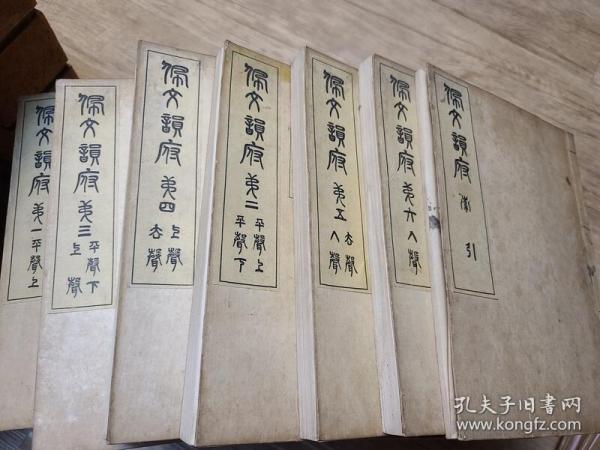 佩文韻府 第一 平聲上
佩文韻府 第三 平聲下 上聲
佩文韻府 第四 上聲 去聲
佩文韻府 第二 平聲上 平聲下
佩文韻府 第五 去聲 入聲
佩文韻府 第六 入聲
佩文韻府 索引
孔夫子旧书网
www.kongfz.com